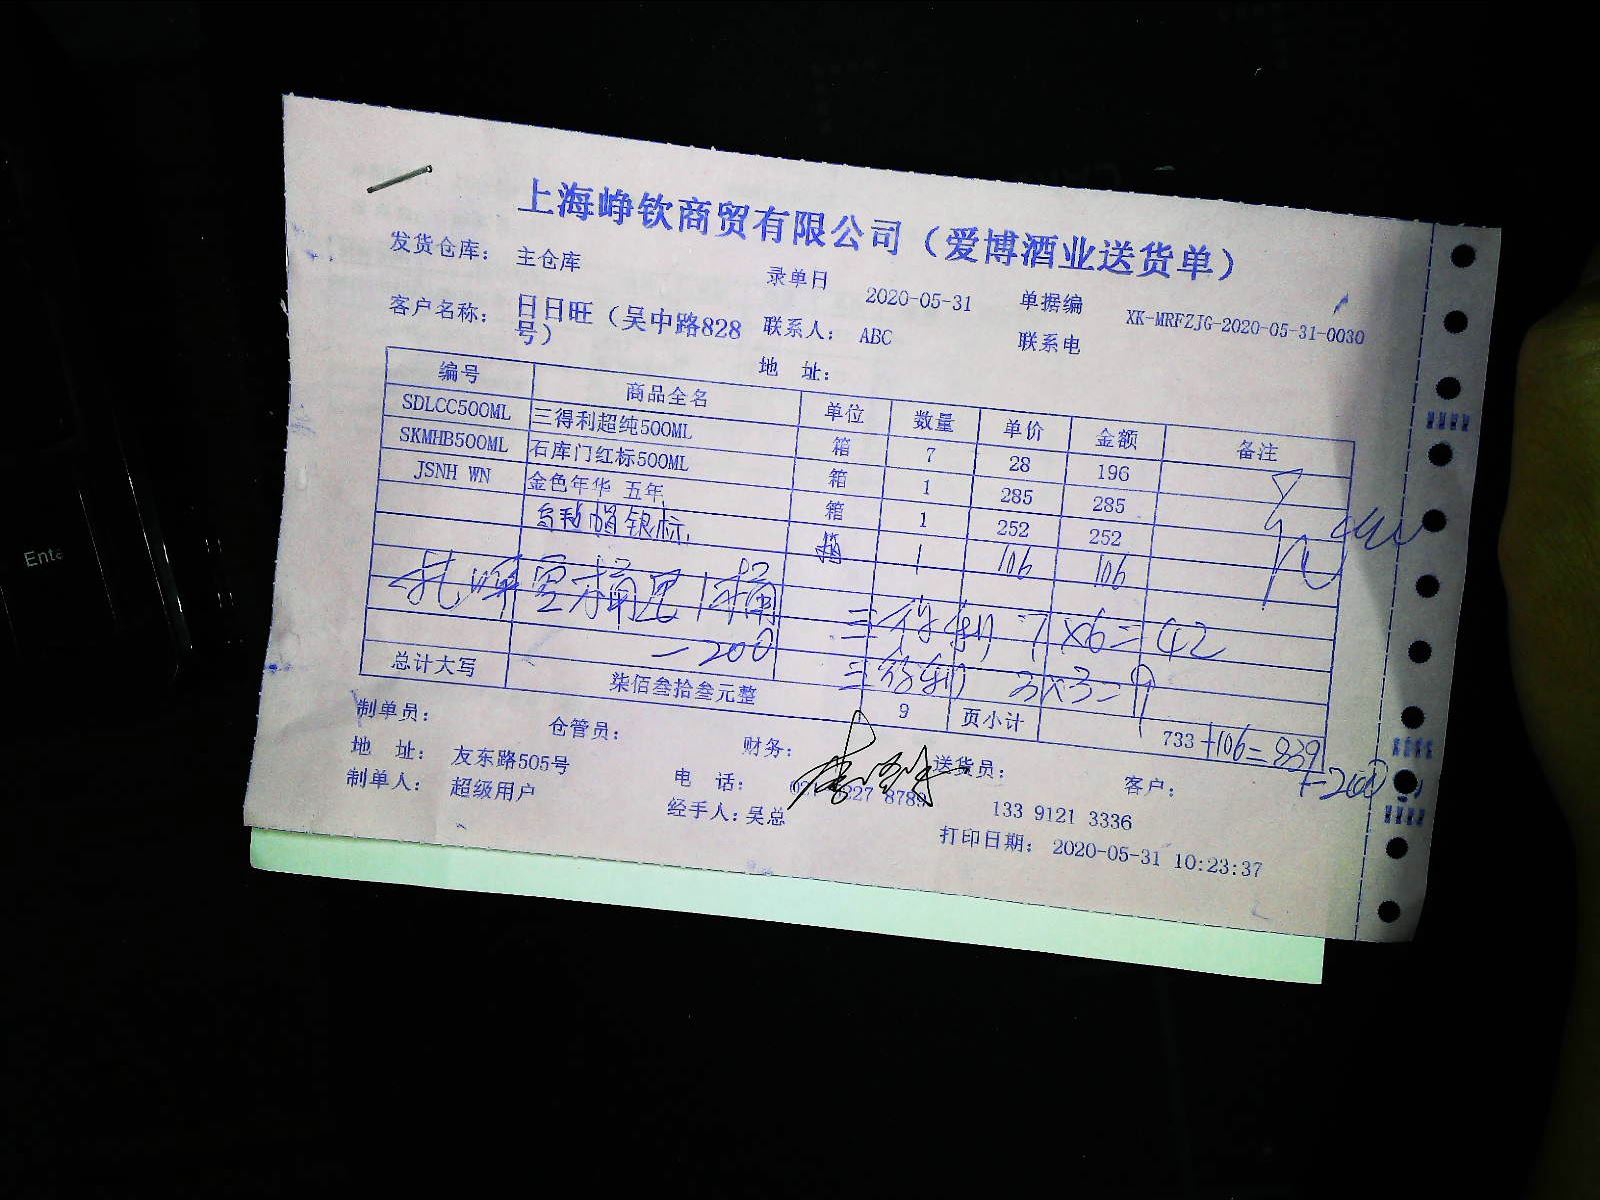 上海峥钦商贸有限公司（爱博酒业送货单）
发货仓库： 主仓库 录单日 2020-05-31 单据编 XK-MRFZJG-2020-05-31-0030
客户名称： 日日旺（吴中路828号） 联系人： ABC 联系电
地 址：
编号 商品全名 单位 数量 单价 金额 备注
SDLCC500ML 三得利超纯500ML 箱 7 28 196
SKMHB500ML 石库门红标500ML 箱 1 285 285
JSNH WN 金色年华 五年 箱 1 252 252
乌毡帽银标 箱 1 106 106
三得利 7×6=42
-200
三得利 3×3=9
总计大写 柒佰叁拾叁元整 9 页小计 733 +106=839
-200
制单员： 仓管员： 财务： 送货员： 客户：
地 址： 友东路505号 电 话： 227 8789 133 9121 3336
制单人： 超级用户 经手人：吴总 打印日期： 2020-05-31 10:23:37
Ente